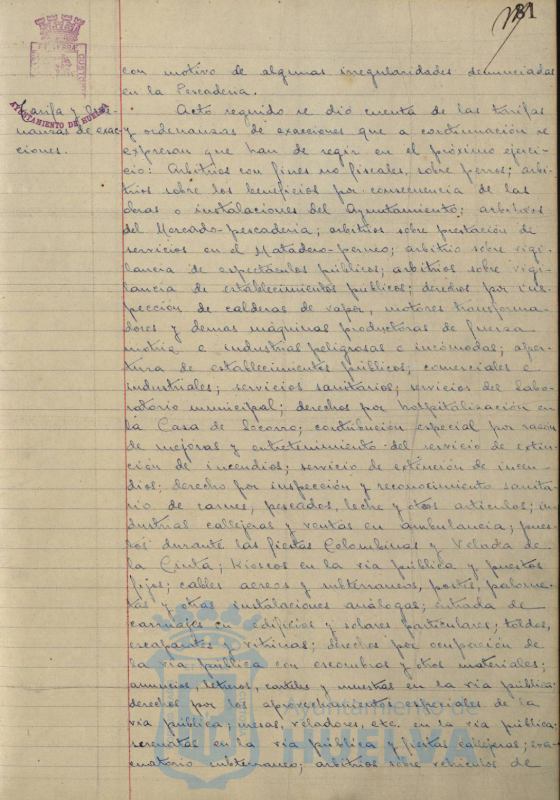 81
con motivo de algunas irregularidades denunciadas
en la Pescaderia.
Tarifa y Orde-
nanzas de exac-
ciones.
AYUNTAMIENTO DE HUELVA
Acto seguido se dió cuenta de las tarifas
y ordenanzas de exacciones que a continuación se
expresan que han de regir en el próximo ejerci-
cio: Arbitrios con fines no fiscales, sobre perros; arbi-
trios sobre los beneficios por consecuencia de las
obras o instalaciones del Ayuntamiento; arbitrios
del Mercado-pescaderia; arbitrios sobre prestación de
servicios en el Matadero-porneo; arbitrio sobre vigi-
lancia de espectáculos públicos; arbitrios sobre vigi-
lancia de establecimientos publicos; derechos por ins-
pección de calderas de vapor, motores transforma-
dores y demas máquinas productoras de fuerza
motriz e industrias peligrosas e incómodas; aper-
tura de establecimientos públicos, comerciales e
industriales; servicios sanitarios; servicios del Labo-
ratorio municipal; derechos por hospitalización en
la Casa de Socorro; contribución especial por razón
de mejoras y entretenimiento del servicio de extin-
ción de incendios; servicio de extinción de incen-
dios; derecho por inspección y reconocimiento sanita-
rio de carnes, pescados, leche y otros articulos; in-
dustrias callejeras y ventas en ambulancia; pues-
tos durante las fiestas Colombinas y Velada de
la Cinta; kioscos en la via pública y puestos
fijos; cables aereos y subterraneos, postes, palomi-
llas y otras instalaciones análogas; entrada de
carruajes en edificios y solares particulares; toldos,
escaparates y vitrinas; derechos por ocupación de
la via pública con escombros y otros materiales;
anuncios, letreros, carteles y muestras en la via pública
derechos por los aprovechamientos especiales de la
via pública; mesas, veladores, etc. en la via pública
serenatas en la via pública y fiestas callejeras; eva-
cuatorio subterraneo; arbitrios sobre vehiculos de
Ayuntamiento de
HUELVA